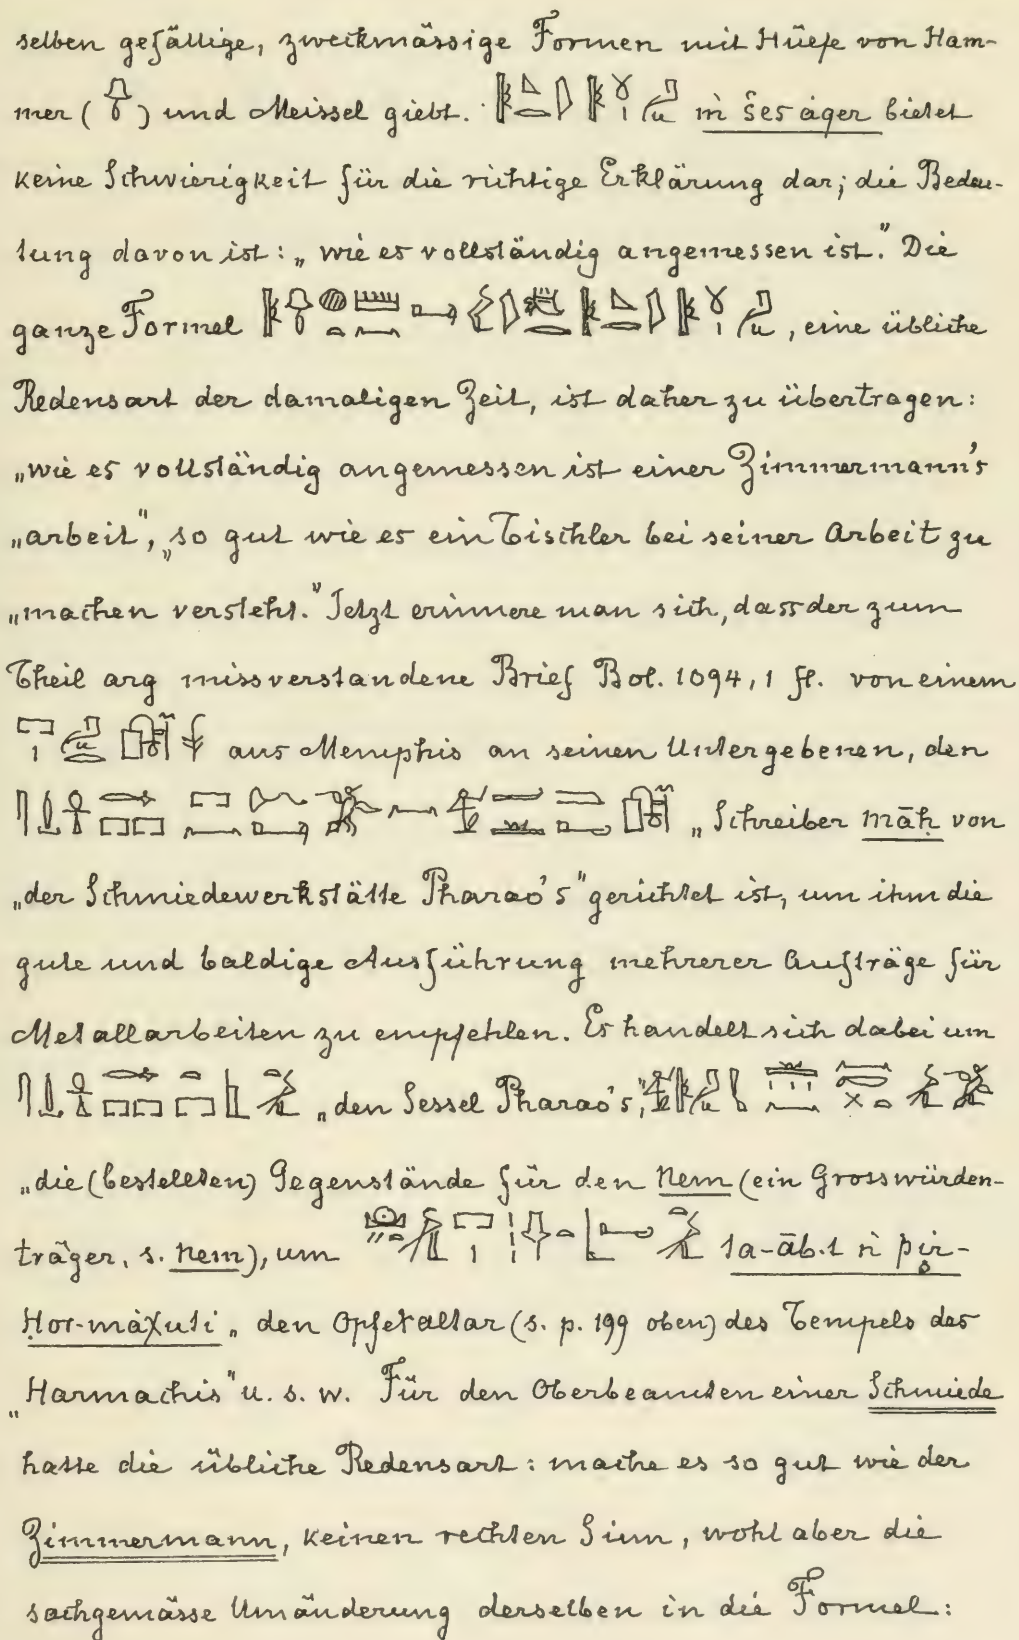 selben gefällige, zweckmässige Formen mit Hülfe von Ham-
mer ( ) und Meissel giebt. ṁ śes áqer bietet
keine Schwierigkeit für die richtige Erklärung dar; die Bedeu-
tung davon ist: „wie es vollständig angemessen ist." Die
ganze Formel , eine übliche
Redensart der damaligen Zeit, ist daher zu übertragen:
„wie es vollständig angemessen ist einer Zimmermann's
„arbeit", „so gut wie es ein Tischler bei seiner Arbeit zu
„machen versteht." Jetzt erinnere man sich, dass der zum
Theil arg missverstandene Brief Bol. 1094, 1 fl. von einem
aus Memphis an seinen Untergebenen, den
„Schreiber māḥ von
„der Schmiedewerkstätte Pharao's" gerichtet ist, um ihm die
gute und baldige Ausführung mehrerer Aufträge für
Metallarbeiten zu empfehlen. Es handelt sich dabei um
„den Sessel Pharao's,"
„die (bestellten) Gegenstände für den Nem (ein Grosswürden-
träger, s. Nem), um ta-āb.t ṅ pir-
Ḥor-máχuti „den Opferaltar (s. p. 199 oben) des Tempels des
„Harmachis" u. s. w. Für den Oberbeamten einer Schmiede
hatte die übliche Redensart: mache es so gut wie der
Zimmermann, keinen rechten Sinn, wohl aber die
sachgemässe Umänderung derselben in die Formel: